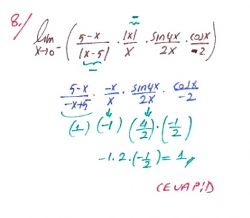 8./ lim x→0⁻ ( (5-x)/|x-5| · |x|/x · sin4x/2x · cosx/-2 )
(5-x)/(-x+5) · -x/x · sin4x/2x · cosx/-2
(1) (-1) (4/2) · (-1/2)
-1.2.(-1/2) = 1,,
CEVAP: D